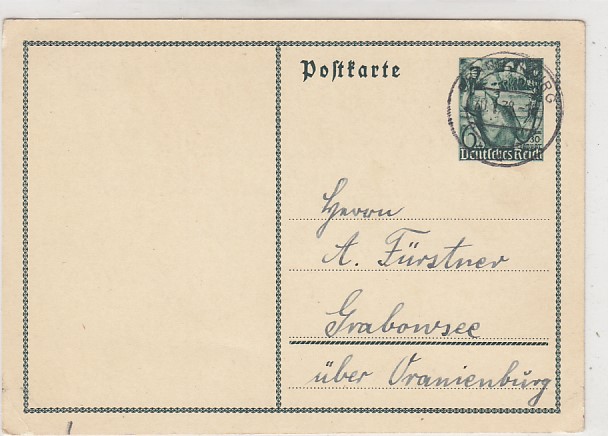 Postkarte
30.1.38
6
Deutsches Reich
Herrn
A. Fürstner
Grabowsee
über Oranienburg